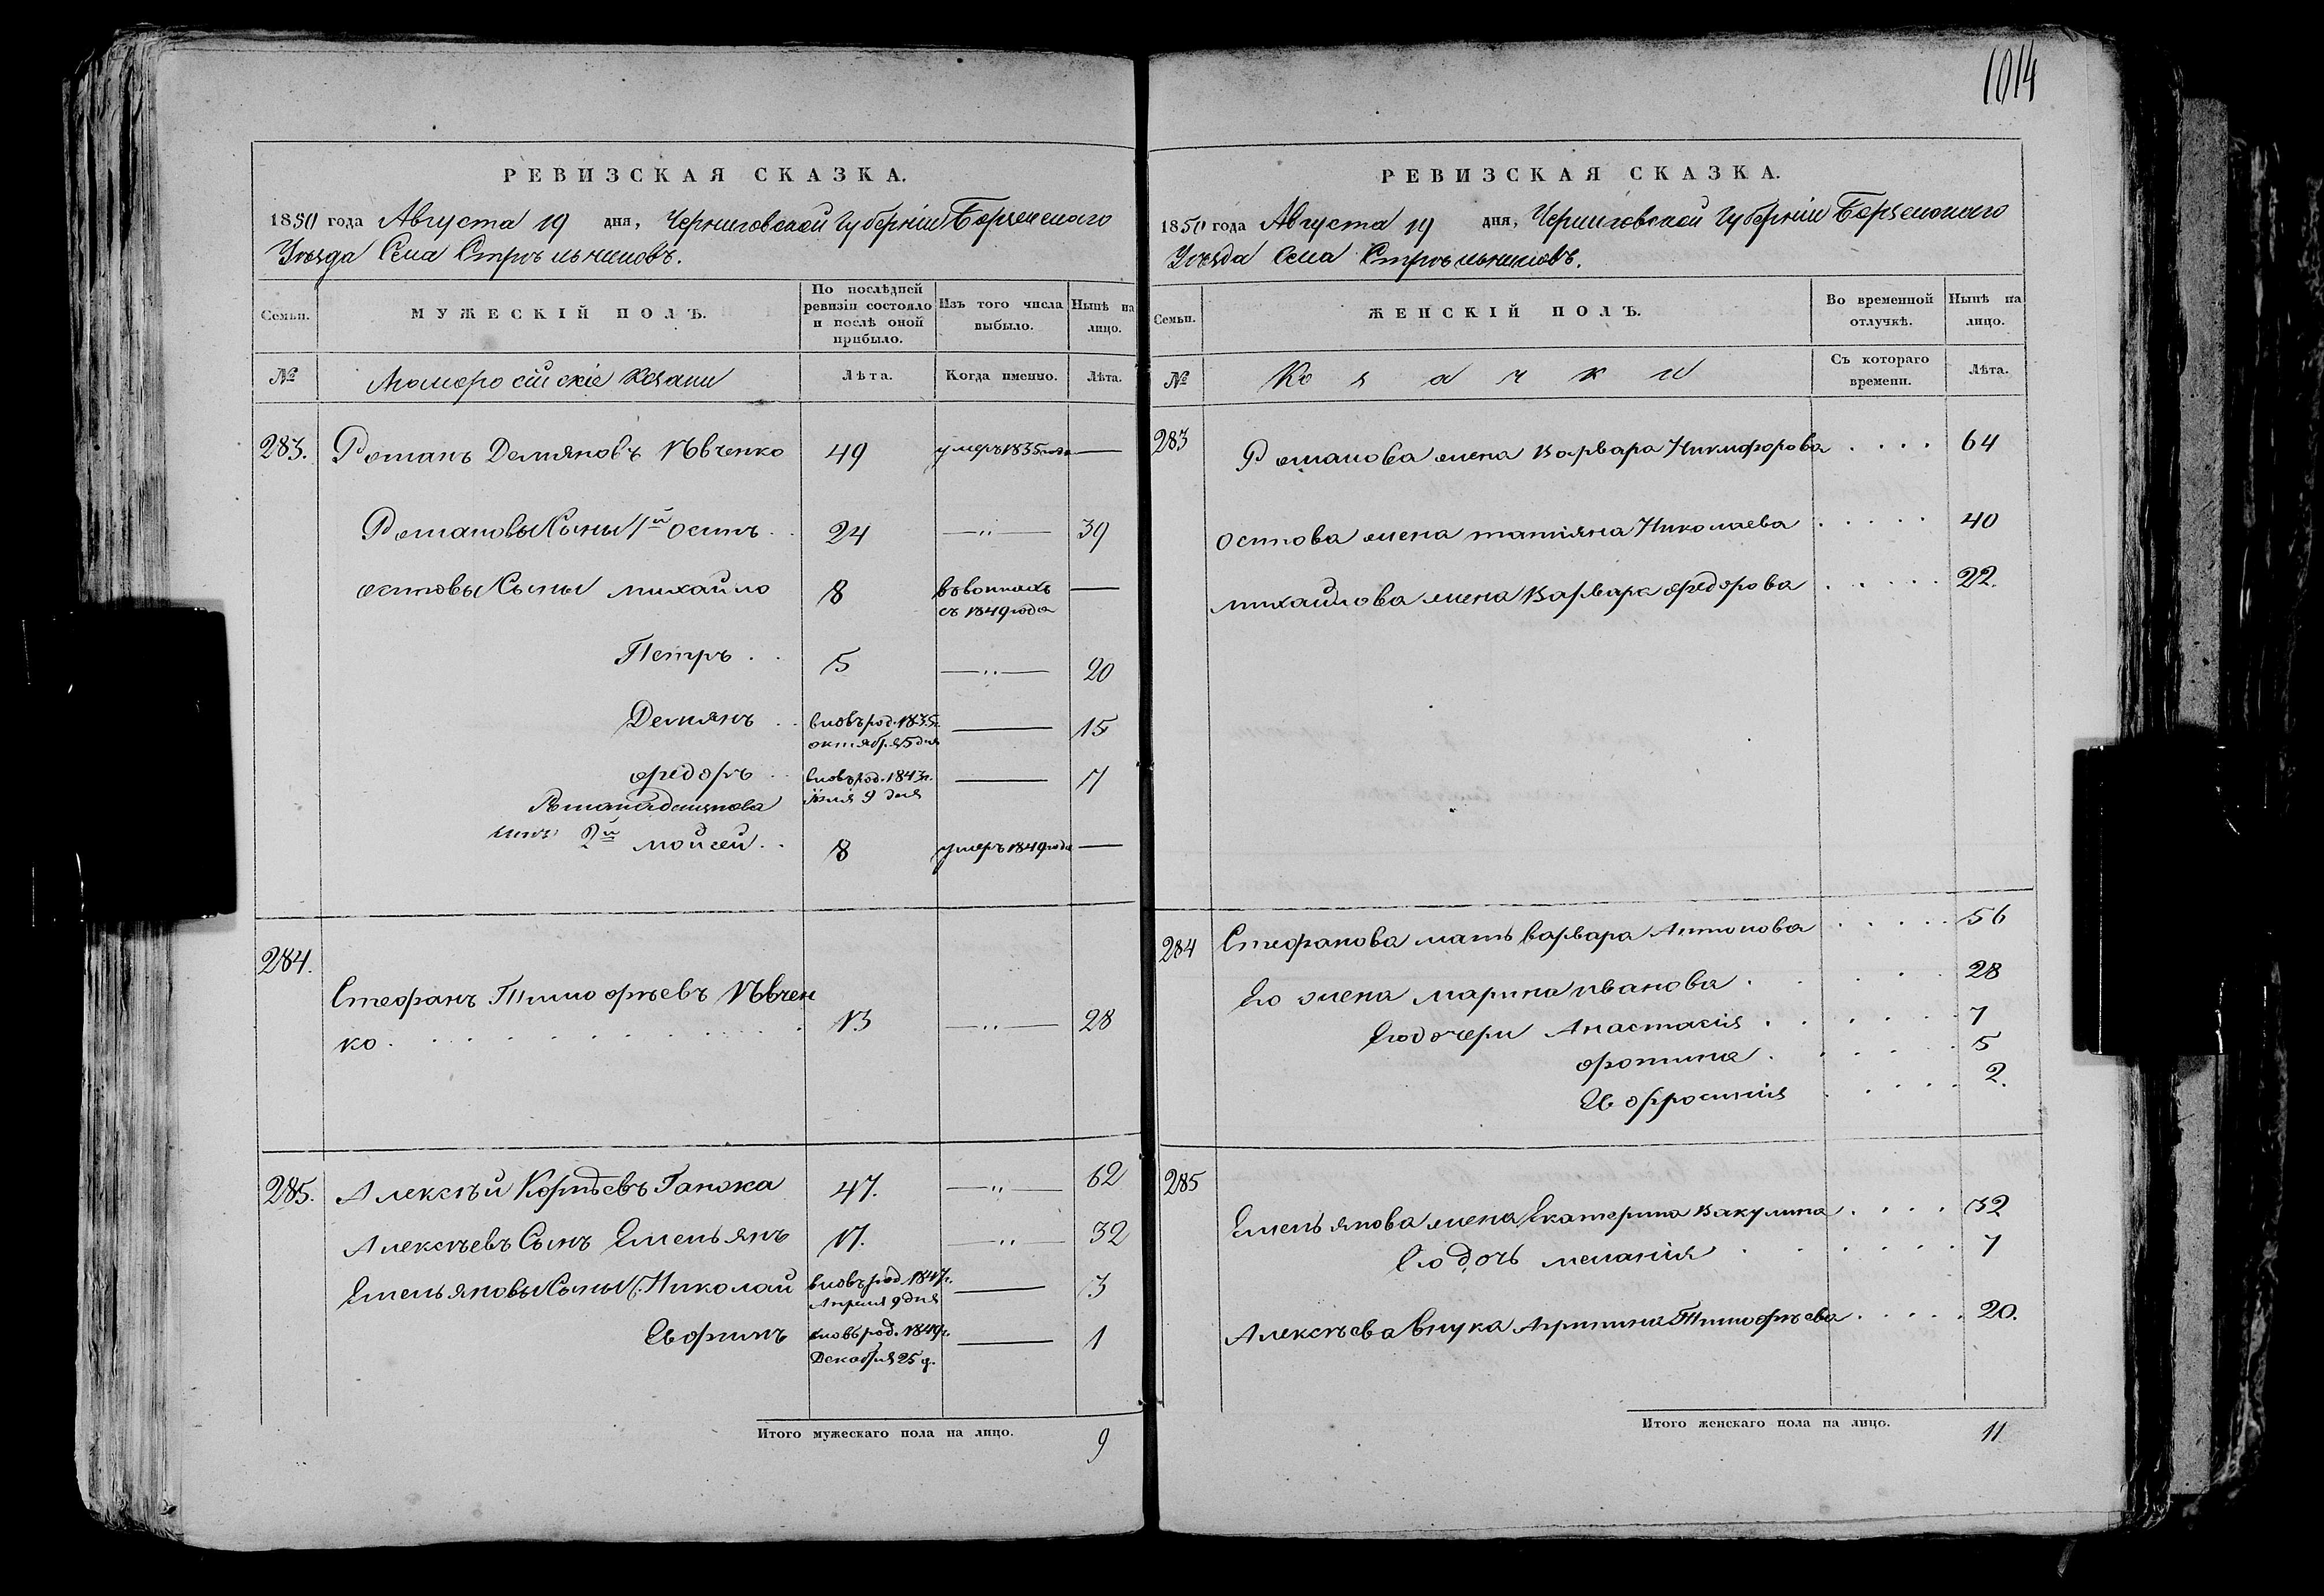 1014
РЕВИЗСКАЯ СКАЗКА.
1850 года Августа 19 дня, Черниговской Губерніи Борзенскаго
Уѣзда Села Стрѣльниковъ.
Семьи. МУЖЕСКІЙ ПОЛЪ. По послѣдней ревизіи состояло и послѣ оной прибыло. Изъ того числа выбыло. Нынѣ на лицо.
№ Малоросійскіе Козаки Лѣта. Когда именно. Лѣта.
283. Романъ Демяновъ Ивченко 49 умеръ 1835 года —
Романовы Сыны 1й Осипъ 24 —"— 39
Осиповы Сыны Михайло 8 съ 1849 года —
Петръ 5 —"— 20
Демянъ вновь род. 1835 г. октября 5 дня — 15
Федоръ вновь род. 1843 г. 9 дня — 7
Романа Демянова
сынъ 2й Мойсей 8 умеръ 1849 года —
284. Стефанъ Тимофѣевъ Ивчен
ко 13 —"— 28
285. Алексѣй Корнѣевъ Ганжа 47. —"— 62
Алексѣевъ Сынъ Емельянъ 17. —"— 32
Емельяновы Сыны Николай вновь род. 1847 г. Апреля 9 дня — 3
Евфимъ вновь род. 1849 г. Декабря 25 д. — 1
Итого мужескаго пола на лицо. 9
РЕВИЗСКАЯ СКАЗКА.
1850 года Августа 19 дня, Черниговской Губерніи Борзенскаго
Уѣзда Села Стрѣльниковъ.
Семьи. ЖЕНСКІЙ ПОЛЪ. Во временной отлучкѣ. Нынѣ на лицо.
№ Козачки Съ котораго времени. Лѣта.
283 Романова жена Варвара Никифорова 64
Осипова жена Татіяна Николаева 40
Михайлова жена Варвара Федорова 22.
284 Стефанова мать Варвара Антонова 56
Его жена Марина Иванова 28
Его дочери Анастасія 7
Фотина 5
Евфросинія 2.
285 Емельянова жена Екатерина Вакулина 32
Его дочь Меланія 7
Алексѣева внука Агрипина Тимофѣева 20.
Итого женскаго пола на лицо. 11